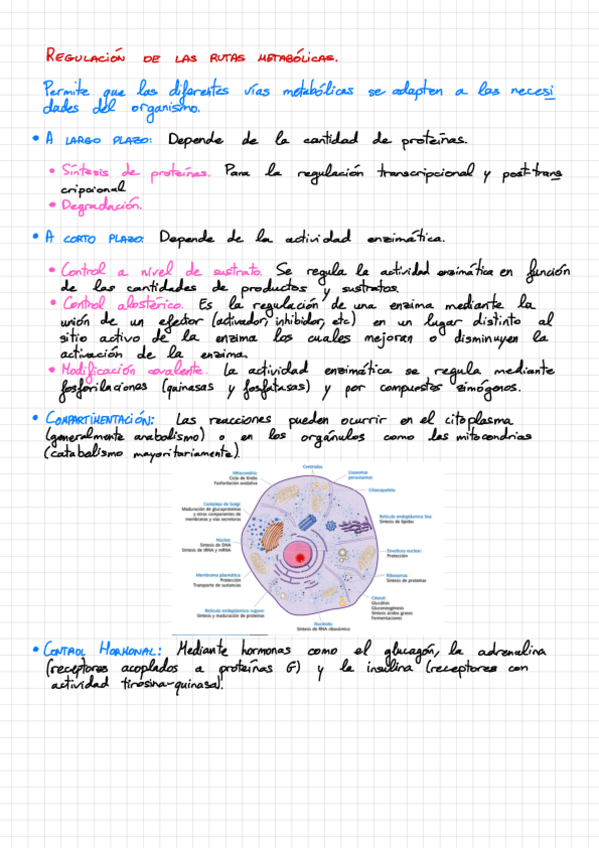 REGULACIÓN DE LAS RUTAS METABÓLICAS.
Permite que las diferentes vías metabólicas se adapten a las necesi
dades del organismo.
• A LARGO PLAZO: Depende de la cantidad de proteínas.
• Síntesis de proteínas. Para la regulación transcripcional y post-trans
cripcional
• Degradación.
• A CORTO PLAZO: Depende de la actividad enzimática.
• Control a nivel de sustrato. Se regula la actividad enzimática en función
de las cantidades de productos y sustratos.
• Control alostérico. Es la regulación de una enzima mediante la
unión de un efector (activador, inhibidor, etc) en un lugar distinto al
sitio activo de la enzima los cuales mejoran o disminuyen la
activación de la enzima.
• Modificación covalente. La actividad enzimática se regula mediante
fosforilaciones (quinasas y fosfatasas) y por compuestos zimógenos.
• COMPARTIMENTACIÓN: Las reacciones pueden ocurrir en el citoplasma
(generalmente anabolismo) o en los orgánulos como las mitocondrias
(catabolismo mayoritariamente).
Centriolos
Mitocondria:
Ciclo de Krebs
Fosforilación oxidativa
Lisosomas
peroxisomas
Citoesqueleto
Complejo de Golgi:
Maduración de glucoproteínas
y otros componentes de
membranas y vías secretoras
Retículo endoplásmico liso:
Síntesis de lípidos
Núcleo:
Síntesis de DNA
Síntesis de tRNA y mRNA
Envoltura nuclear:
Protección
Membrana plasmática:
Protección
Transporte de sustancias
Ribosomas:
Síntesis de proteínas
Citosol:
Glucólisis
Gluconeogénesis
Síntesis ácidos grasos
Fermentaciones
Retículo endoplásmico rugoso:
Síntesis y maduración de proteínas
Nucléolo:
Síntesis de RNA ribosómico
• CONTROL HORMONAL: Mediante hormonas como el glucagón, la adrenalina
(receptores acoplados a proteínas G) y la insulina (receptores con
actividad tirosina-quinasa).